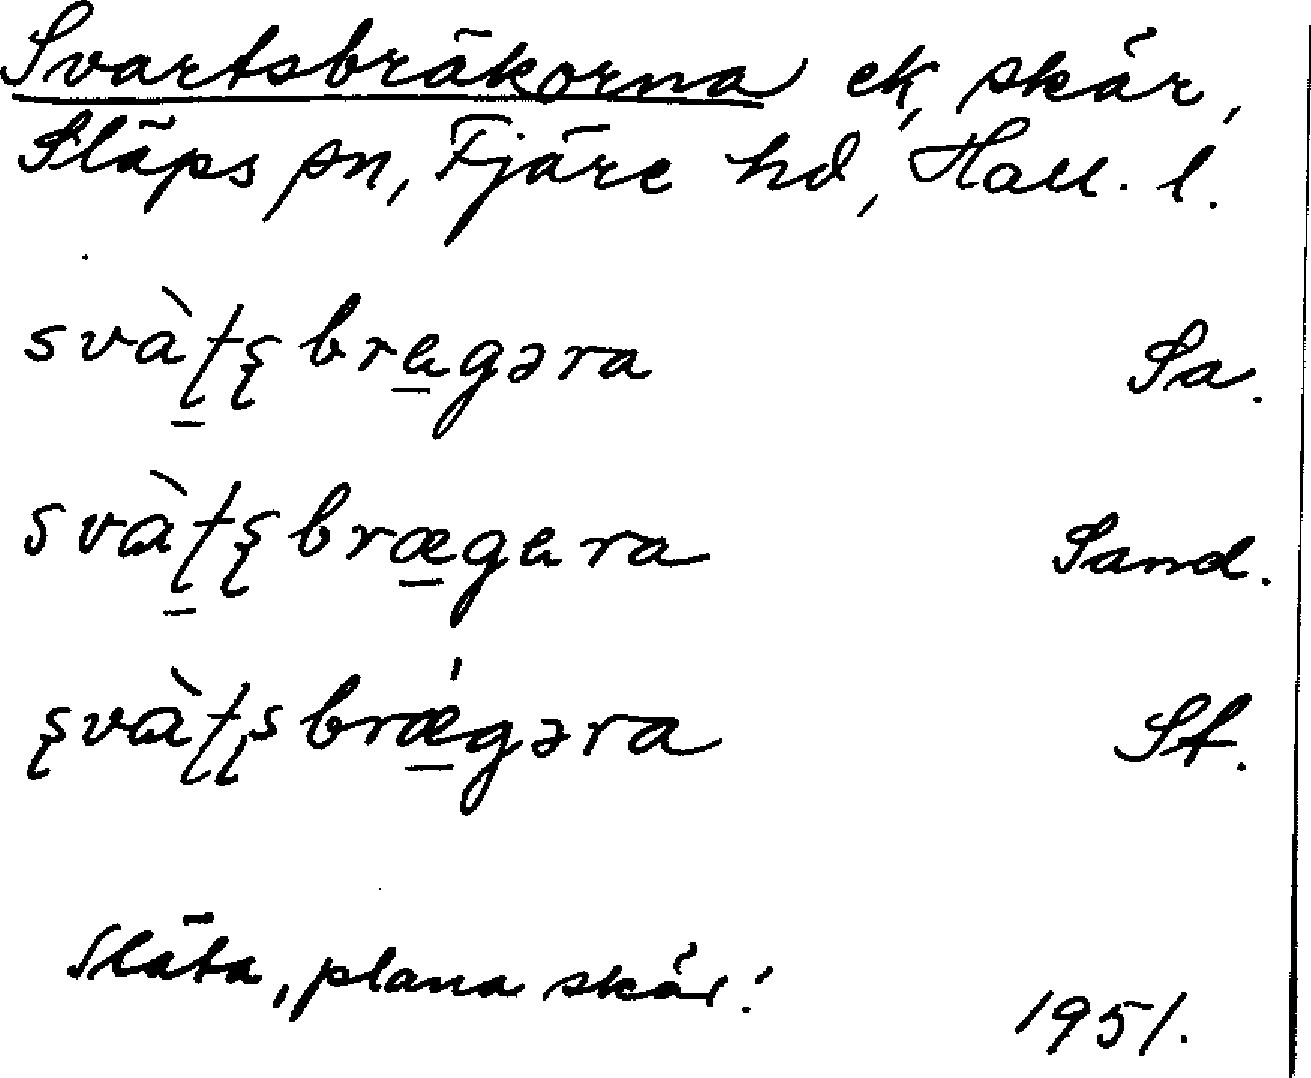 Svartsbräkorna ek, skär,
Släps sn, Fjäre hd, Hall. l.
svàʈʂbragəra Sa.
svàʈʂbrægara Sand.
ʂvàʈʂbrǽgəra St.
Släta, plana skär!
1951.